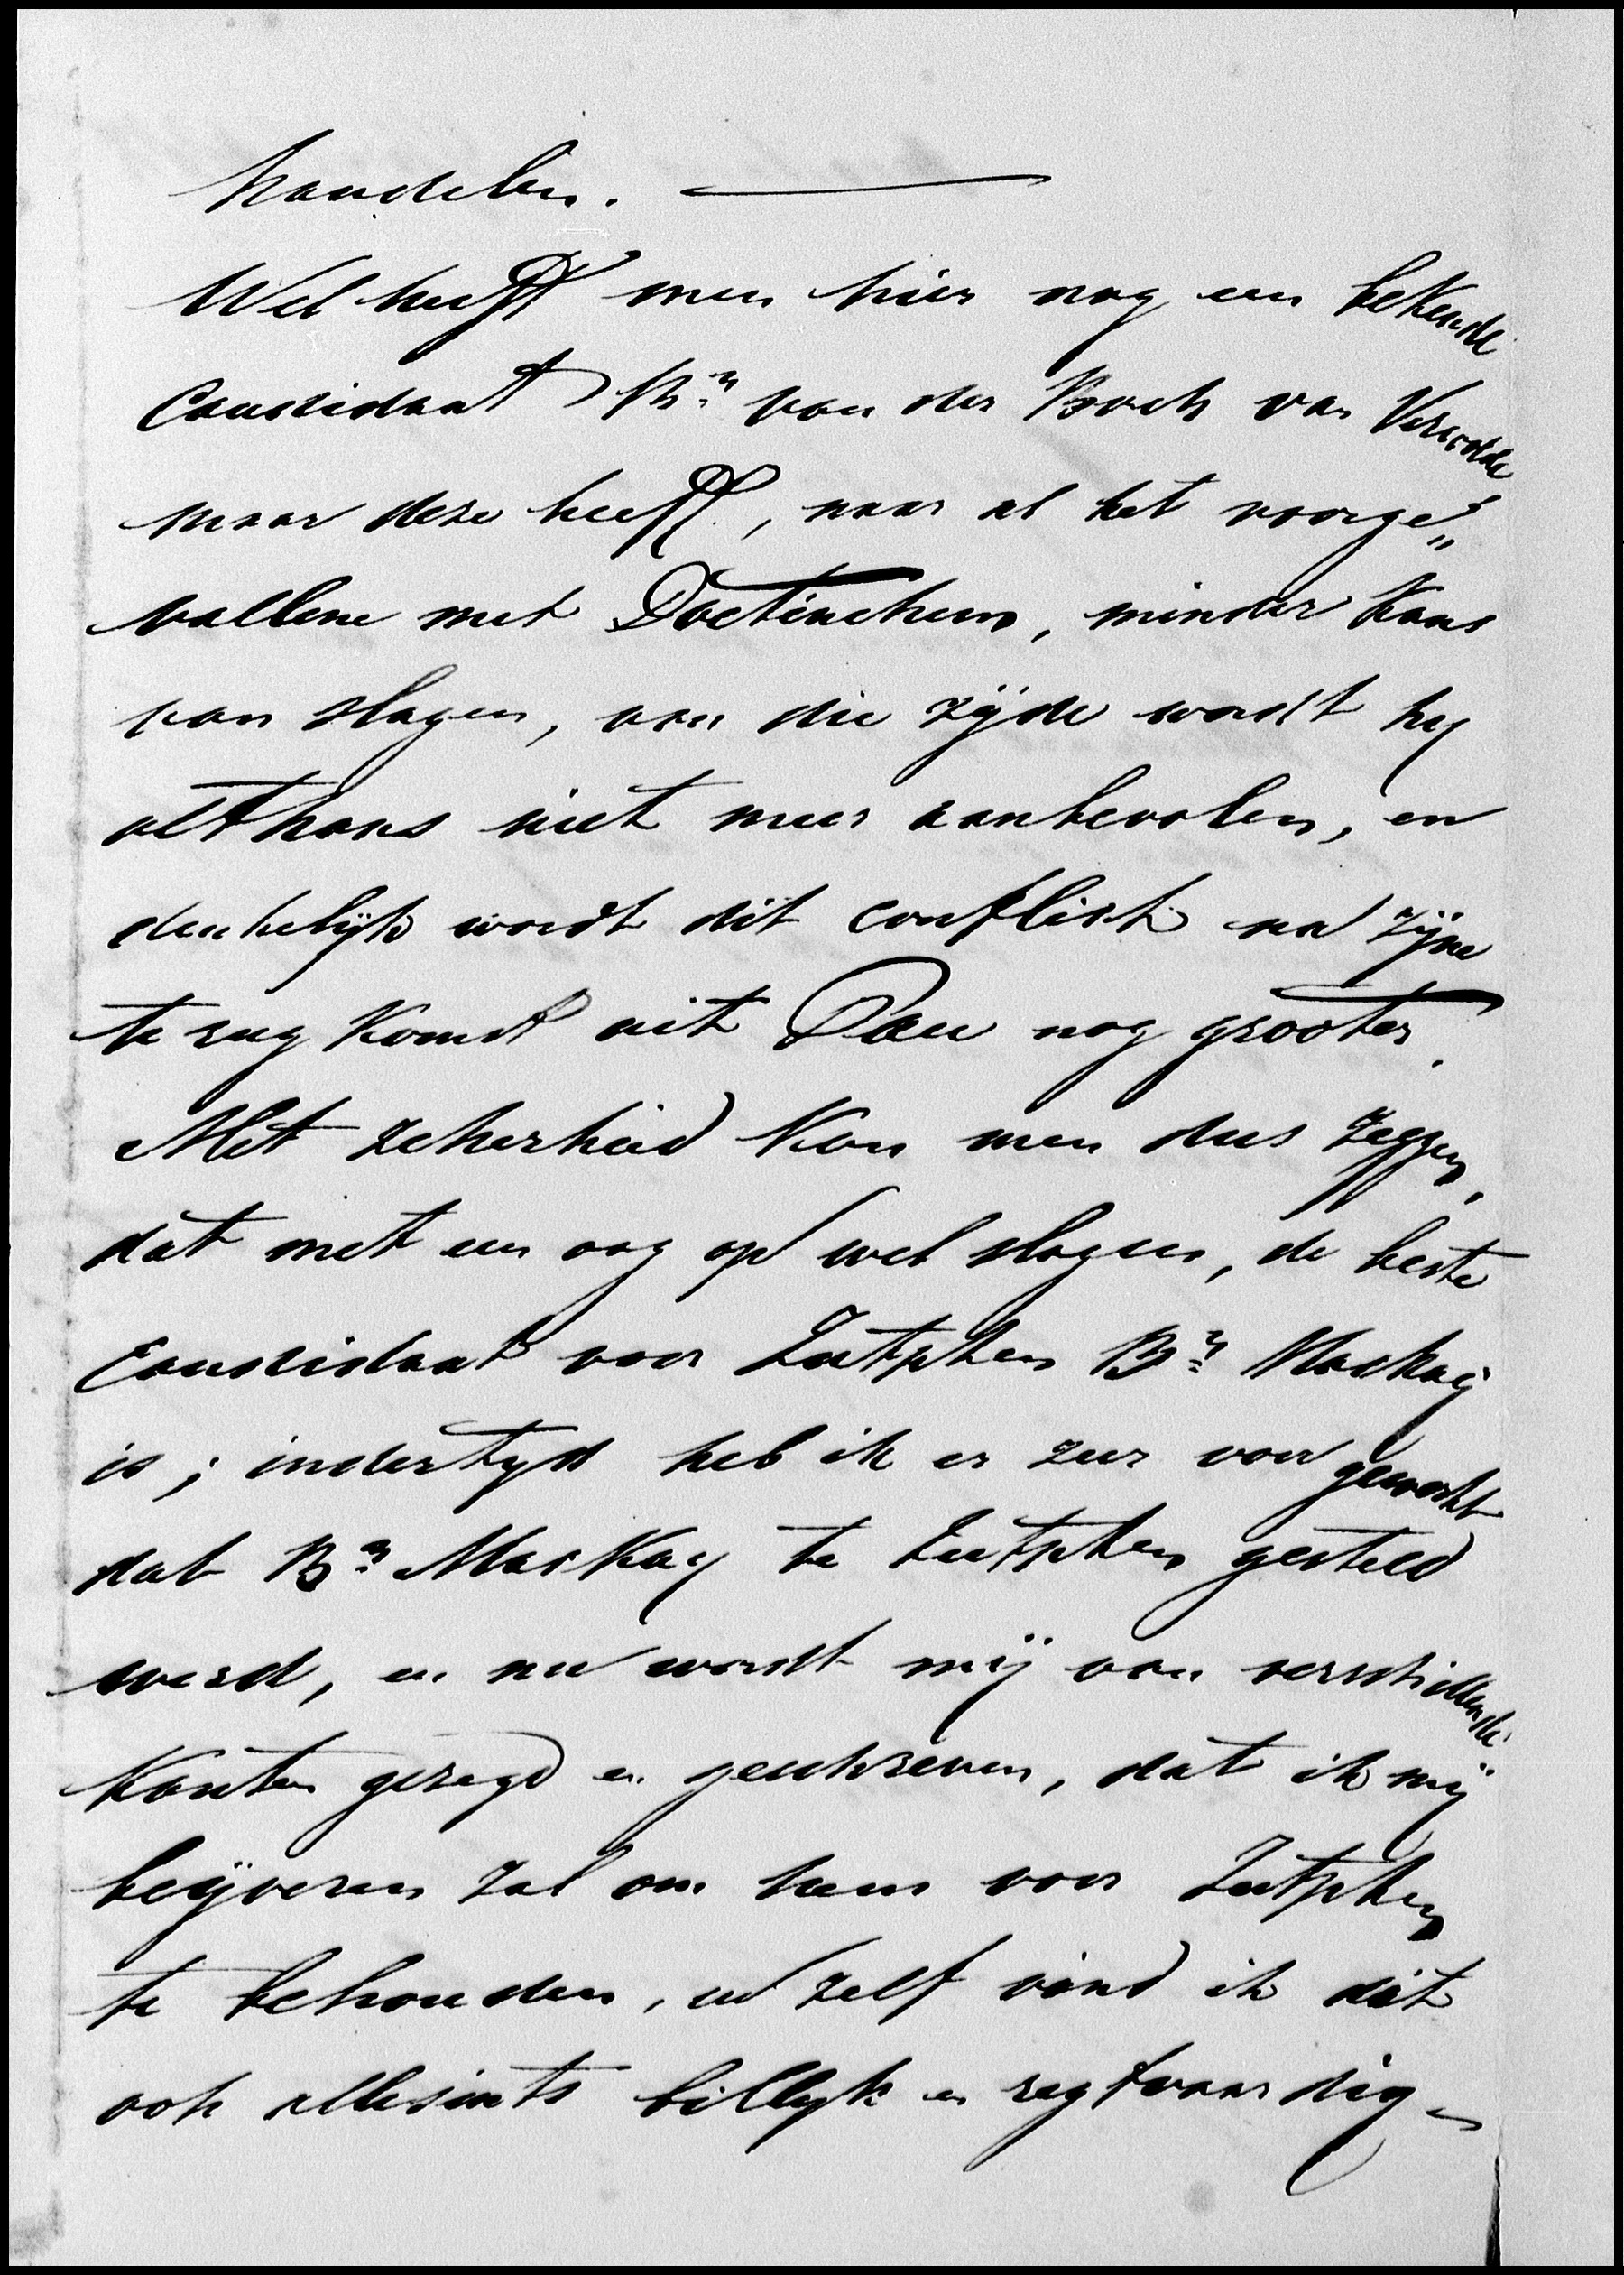 handelen. —
Wel heeft men hier nog een bekende
Candidaat, Bn van der Borch van Verwolde
maar deze heeft, naar al het voorge„
vallene met Doetinchem, minder kans
van slagen, van die zijde wordt hy
althans niet meer aanbevolen, en
denkelijk wordt dit conflict na zijne
terug komst uit Pau nog grooter.
Met zekerheid kan men dus zeggen,
dat met een oog op wel slagen, de beste
Candidaat voor Zutphen Bn Mackay
is; indertyd heb ik er zeer voor gewerkt
dat Bn MacKay te Zutphen gesteld
werd, en nu wordt mij van verschillende
Kanten gezegd en geschreven, dat ik mij
beijveren zal om hem voor Zutphen
te behouden, en zelf vind ik dit
ook allesints billyk en regtvaardig